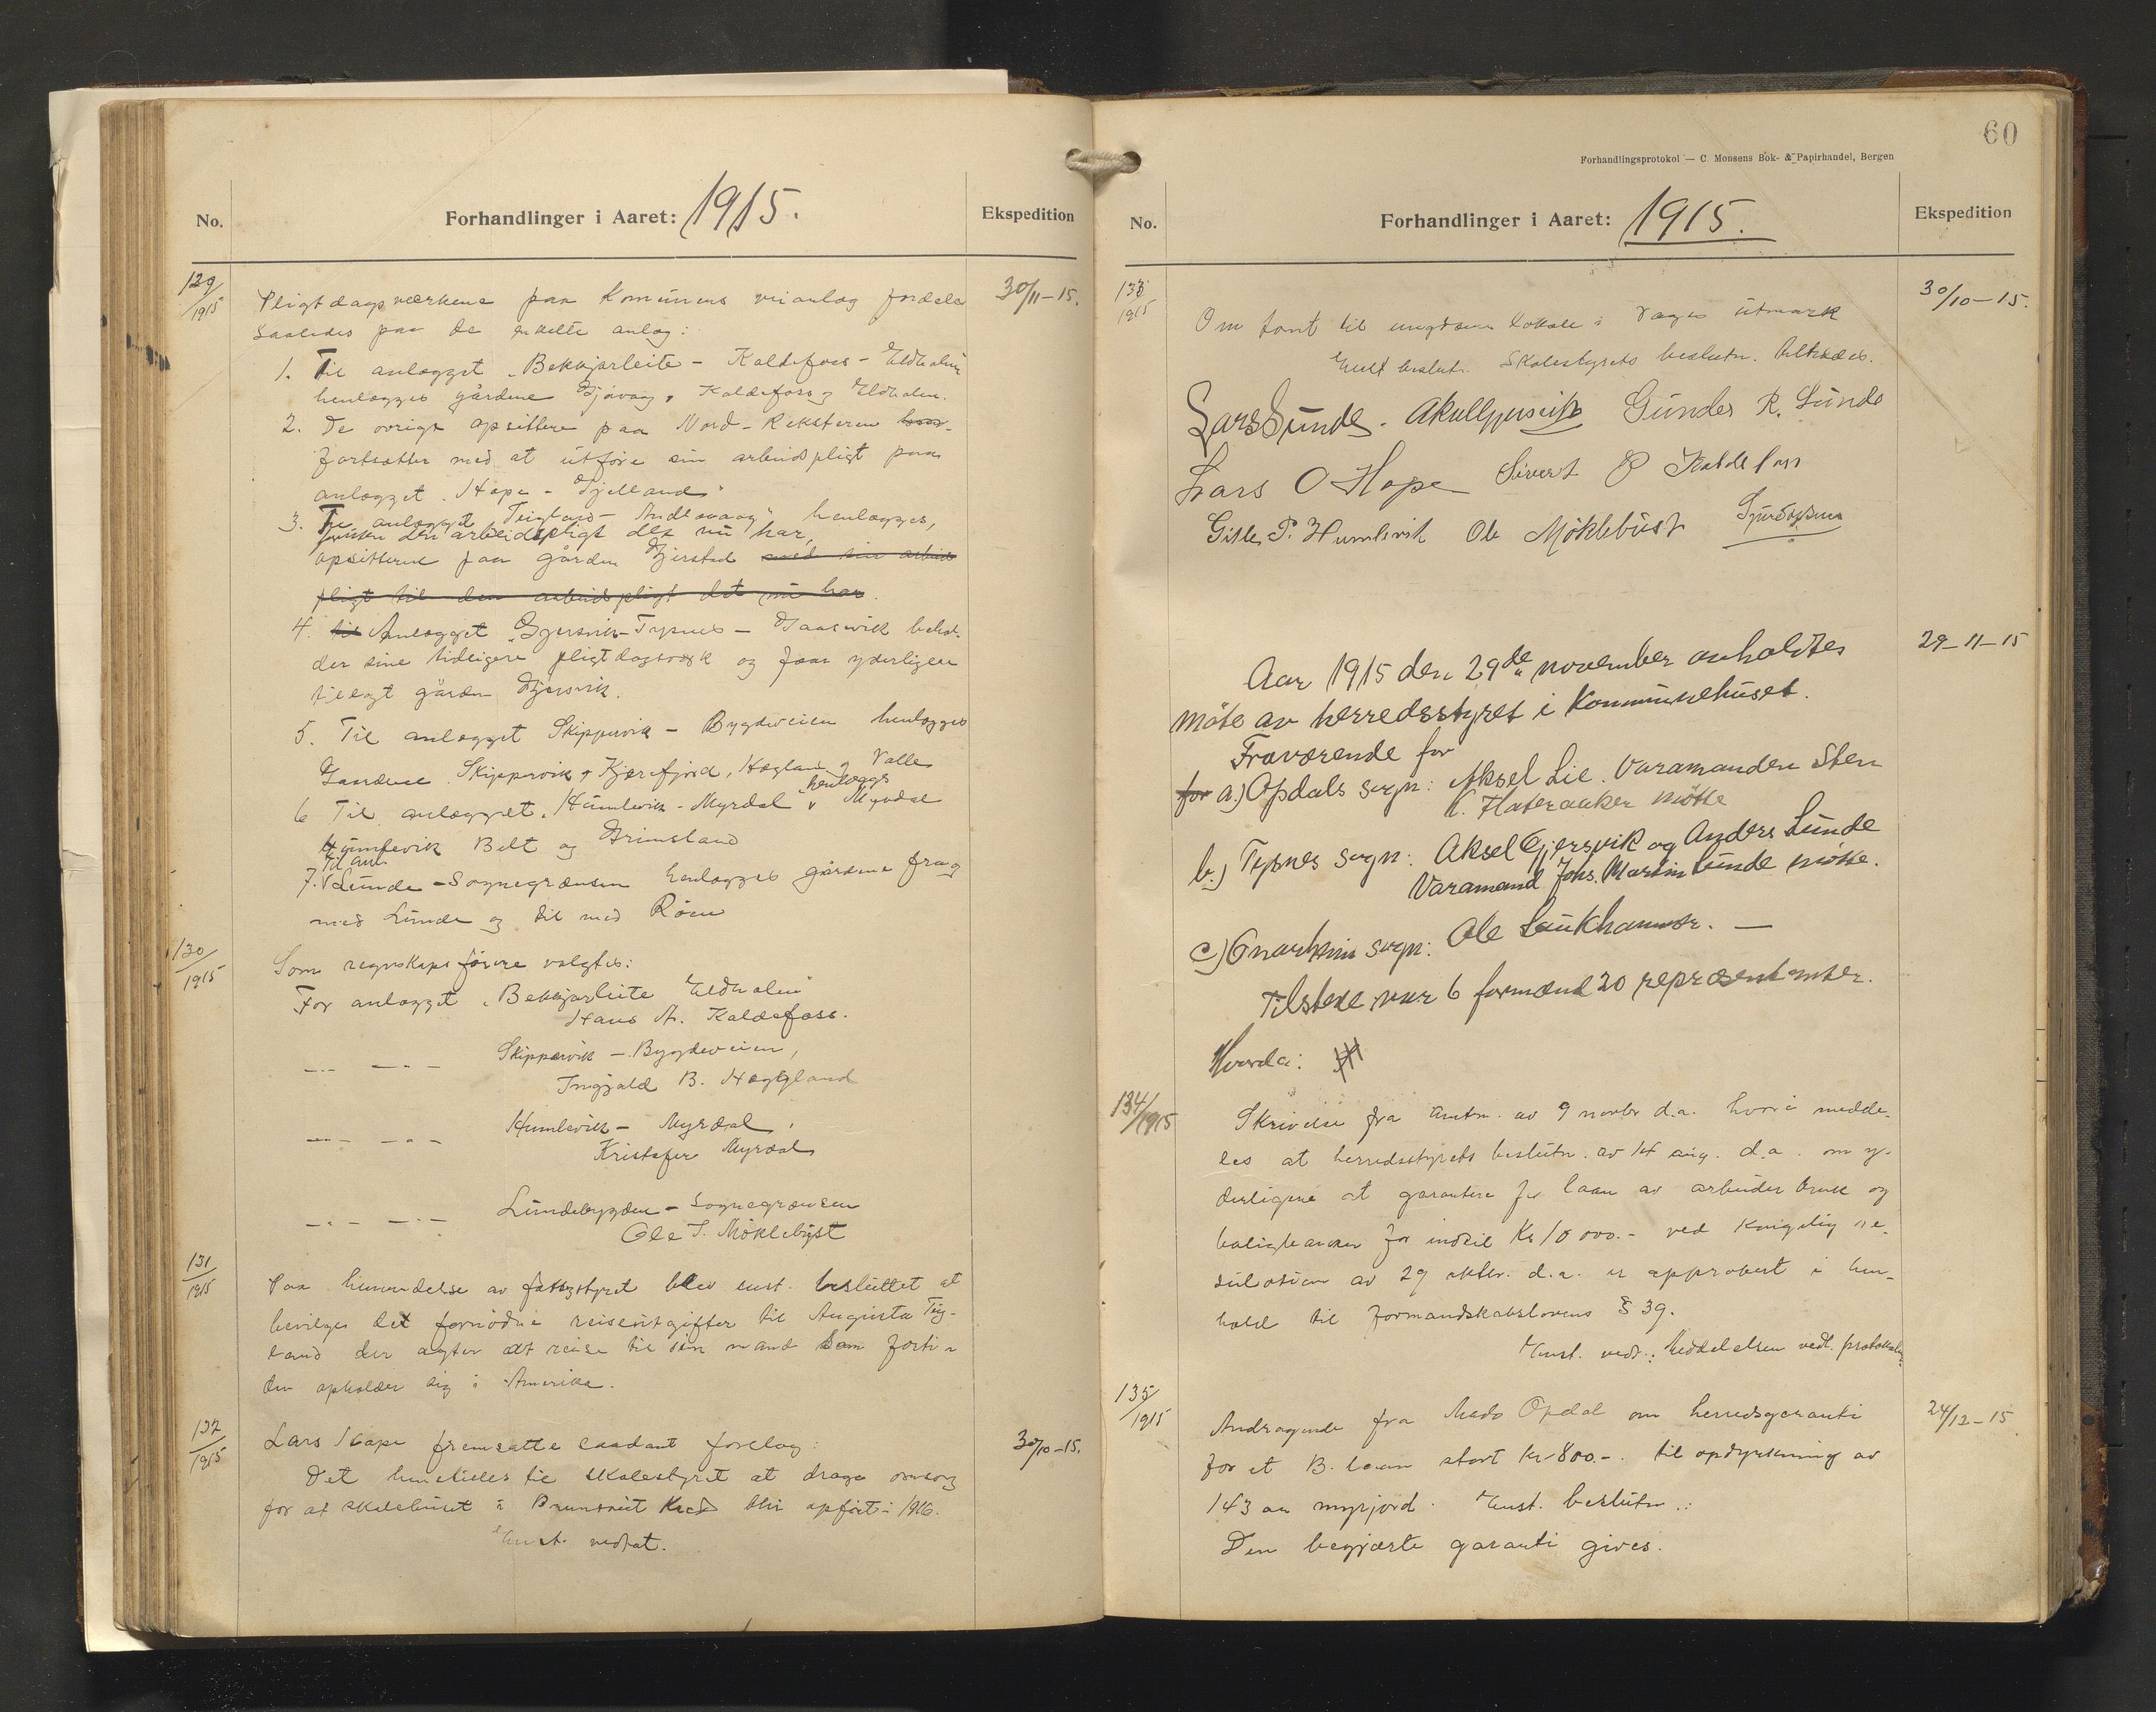 No.
Forhandlinger i Aaret: 1915.
Ekspedition
129/1915
30/11-15.
Pligtdagsværkene paa Komunens veianlæg fordeles
saaledes paa de enkelte anlæg:
1. Til anlægget "Bekkjarleite - Kaldefoss - Eldholm"
henlægges gårdene Gjøvaag, Kaldefoss og Eldholm.
2. De øvrige opsittere paa Nord-Reksteren
fortsætter med at utføre sin arbeidspligt paa
anlægget "Hope - Gjelland"
3. anlægget Teigland - Andersvaag" henlægges,
den arbeidspligt det nu har,
opsitterne paa gården Gjerstad med sin arbeids
pligt til den arbeidspligt det nu har.
4. til Anlægget "Gjersvik-Tysnes - Gaasvik behol-
der sine tidligere pligtdagsværk og faar yderligere
tillagt gården Gjersvik.
5. Til anlægget Skippervik - Bygdeveien henlægges
Gaardene Skippervik, Kjærefjord, Hægland og Valle
6 Til anlægget "Humlevik - Myrdal henlægges Myrdal
Humlevik Belt og Grimsland
7. Til anl. Lunde - Sognegrænsen henlægges gårdene fra og
med Lunde og til med Röen
130/1915
Som regnskapsförere valgtes:
For anlægget "Bekkjarleite Eldholm"
Hans A. Kaldefoss.
Skippervik - Bygdeveien,
Ingjald B. Hægland
Humlevik - Myrdal,
Kristofer Myrdal
Lundebygden - Sognegrænsen
Ole T. Möklebust
131/1915
Paa henvendelse av fattigstyret blev enst. besluttet at
bevilges det fornödne reiseutgifter til Augusta Teig-
land der agter at reise til sin mand som forti-
den opholder sig i Amerika.
132/1915
30/10-15.
Lars Hope fremsatte saadant forslag:
Det henstilles til skolestyret at drage omsorg
for at skolehuset i Brunsvit Kred blir opfört i 1916.
Enst. vedtat.
60
Forhandlingsprotokol — C. Monsens Bok- & Papirhandel, Bergen
No.
Forhandlinger i Aaret: 1915.
Ekspedition
133/1915
30/10-15.
Om tomt til ungdoms lokale i Vaages utmark
Enst beslut. Skolestyrets beslutn. tiltrædes.
Lars Lunde. Gunder R. Lunde
Lars O Hope Sivert P Kaldefoss
Gisle P. Humlevik Ole Möklebust
29-11-15
Aar 1915 den 29de november avholdtes
möte av herredsstyret i Kommunehuset.
Fraværende for
for a.) Opdals sogn: Aksel Lie. Varamanden Sten
K. Flateraaker mötte
b.) Tysnes sogn: Aksel Gjersvik og Anders Lunde
Varamand Johs. Martin Lunde mötte.
c) Onarheim sogn: Ole Laukhammer. —
Tilstede var 6 formænd 20 repræsentanter.
Hvorda:
134/1915
Skrivelse fra Amtm. av 9 novbr d.a. hvori medde-
les at herredsstyrets beslutn. av 14 aug. d.a. om y-
derligere at garantere for laan av arbeider bruk og
boligbanken for indtil Kr 10 000.- ved Kongelig re-
sulotion av 29 oktbr. d.a. er approbert i hen-
hold til formandskabslovens § 39.
Enst. vedt.: Meddelelsen vedl. protokollen
135/1915
24/12-15
Andragende fra Mads Opdal om herredsgaranti
for et B. laan stort Kr 800.-. til opdyrkning av
143 ar myrjord. Enst. beslutn.:
Den begjærte garanti gives.